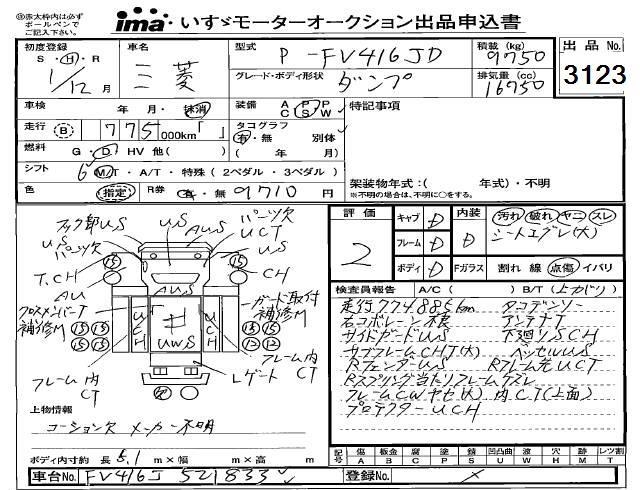 ◎赤太枠内は必ず
ボールペンで
ご記入下さい。
ima いすゞモーターオークション出品申込書
初度登録 車名 型式 P-FV416JD 積載(kg) 9750 出品No.
S・H・R 1/12月 三菱 グレード・ボディ形状 ダンプ 排気量(cc) 16750 3123
車検 年 月・抹消 装備 A P P C S W 特記事項
走行 B 775 000km タコグラフ 有・無 別体
燃料 G・D HV 他( ) ( 年 月)
シフト 6 M/T・A/T・特殊(2ペダル・3ペダル) 架装物年式:( 年式)・不明
※不明の場合は、不明に○をする。
色 指定 R券 有・無 9710円
評価 2 キャブ D 内装 D 汚れ 破れ ヤニ スレ
フレーム D シートエグレ(大)
ボディ D Fガラス 割れ 線 点傷 イバリ
フック部US US AUS パーツ欠 UCT
US パーツ欠 US
15 15
T.CH CH
AU AUS
クロスメンバーT 補修M ガード取付 補修M
UCT UCH
15 15 15 15
15 15 12 12
UWS
フレーム内CT フレーム内CT
Lゲート
欠
検査員報告 A/C( ) B/T(上カドリ)
走行774885km タコデンソー
右コボレーン欠 アンテナT
サイドガードUS 下廻りSCH
サブフレームCH.T(大) ベッセルUS
RフェンダーUS Rフレーム先UCT
Rスプリング当たりフレームケズレ
フレームCWヤセ(大) 内CT(上面)
プロテクターUCH
上物情報
コーション欠 メーカー不明
ボディ内寸約 長5.1m×幅 m×高 m
記号 傷 A 板金 B 腐 C 塗 P 錆 S 凹凸曲 U 波 W 穴 H 跡 M レツ割 T
車台No. FV416J 521833 登録No. ×